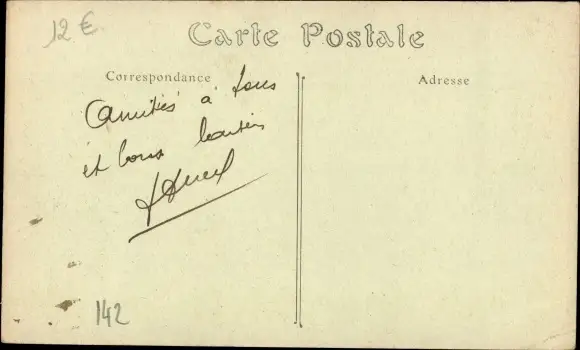 12 €
Carte Postale
Correspondance
Adresse
Amitiés à tous
et bons baisers
142